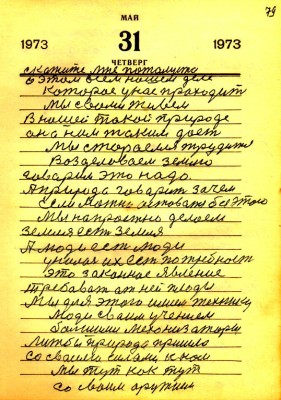 79
МАЙ
1973 31 1973
ЧЕТВЕРГ
скажите мне потомушто
о этом всем нашем деле
Которое у нас проходит
Мы с вами живем
В нашей такой природе
она нам таким дает
Мы стораемся трудится
Возделоваем землю
говорим это надо.
А природа говорит зачем
если можно без этого
Мы напрастно делоем
Земля ест Земля
А люди ест люди
у них ест потребност
Это законное явление
требоват от ней плоды
Мы для этого имеем технику
Люди своим учением
большими механизаторы
Лиш бы природа пришла
со своими силами к нам
Мы тут как тут
со своим оружием